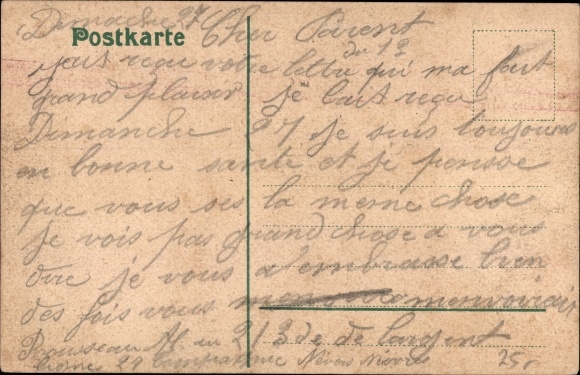 Dimanche 27 Cher Parent
Postkarte
du 12
jait reçu votre lettre qui ma fait
grand plaisir je lait reçu
Dimanche 27 je suis toujours
en bonne santé et je pensse
que vous ses la meme chose
je vois pas grand chose a vous
dire je vous d'embrasse bien
des fois vous menvoirais
Rousseau M. au 213 de de Largent
24 Compagnie Nevers Nievres 25